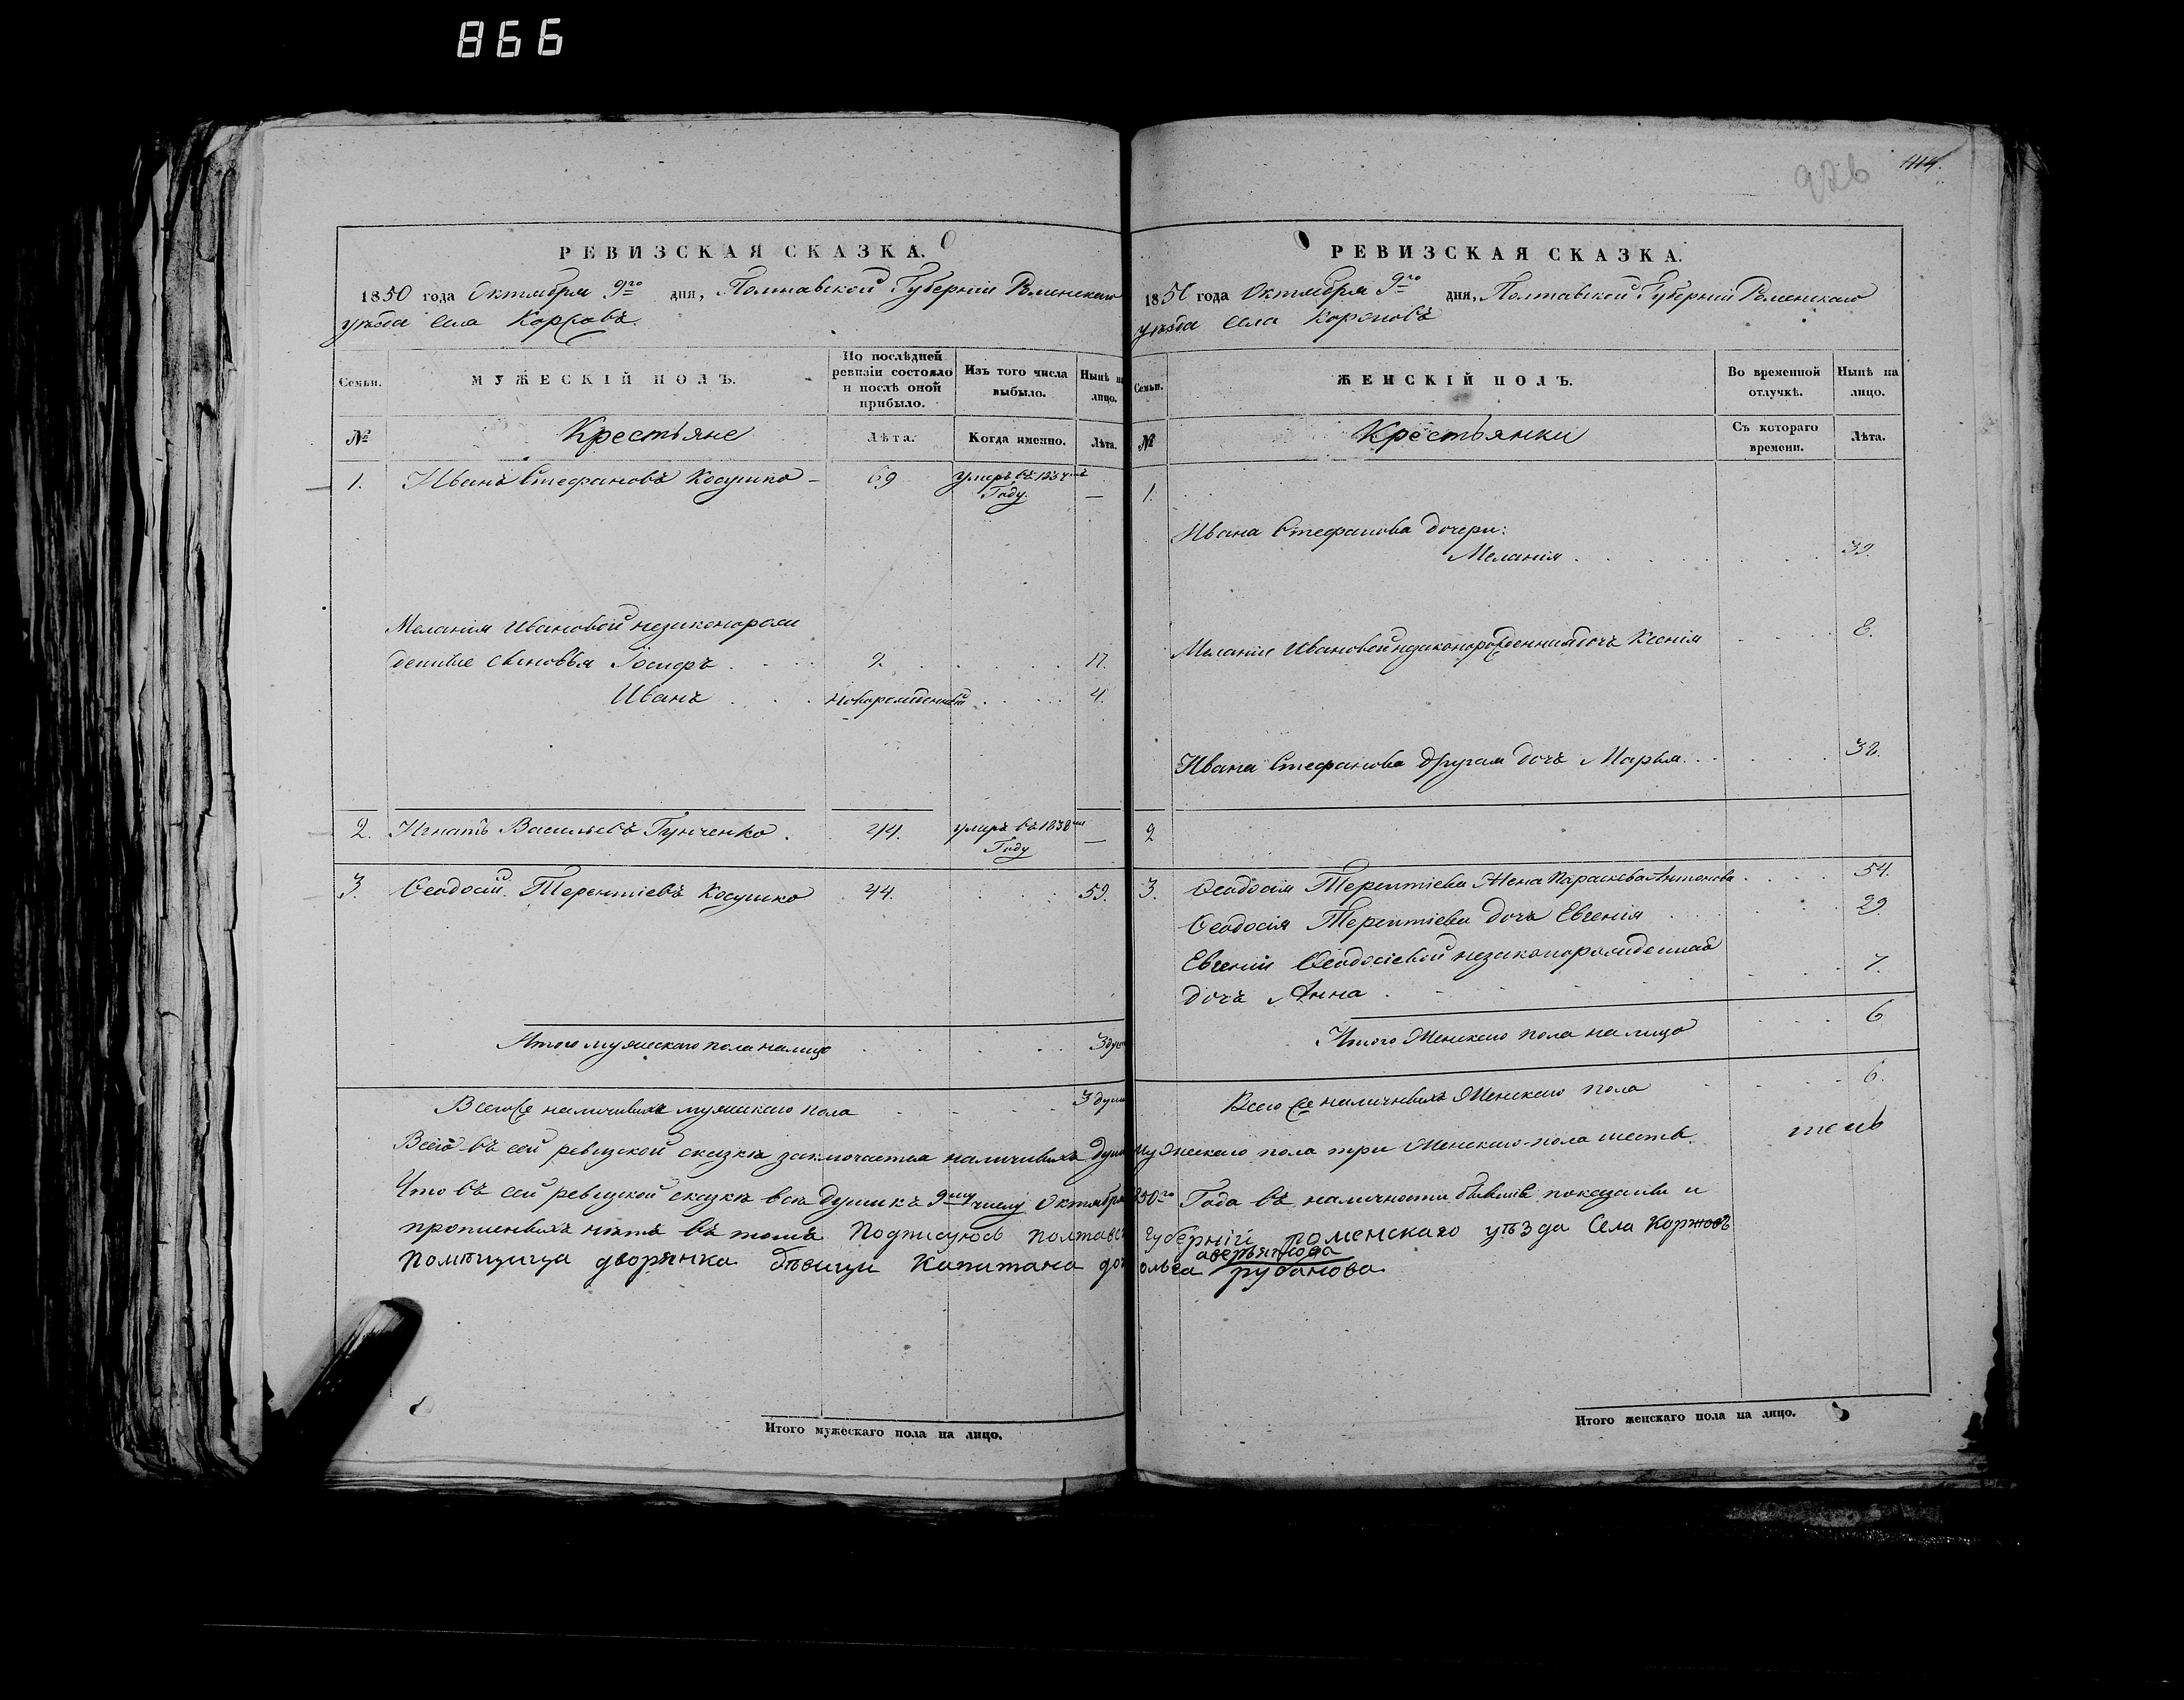 866
926
РЕВИЗСКАЯ СКАЗКА.
1850 года Октября 9го дня, Полтавской Губерніи Роменскаго
уѣзда села Коржовъ.
Семьи.
МУЖЕСКІЙ ПОЛЪ.
По послѣдней ревизіи состояло и послѣ оной прибыло.
Изъ того числа выбыло.
Нынѣ на лицо.
№
Крестьяне
Лѣта.
Когда именно.
Лѣта.
1. Иванъ Стефановъ Косушко - 69 умеръ въ 1837мъ
Году. —
Меланіи Ивановой незаконорож
денные сыновья Іосифъ 2. 17.
Иванъ новорожденный 4.
2. Игнатъ Васильевъ Гунченко. 44. умеръ въ 1838мъ
Году —
3. Ѳеодосій Терентіевъ Косушко 44. 59.
Итого мужескаго пола налицо 3 душ
Всего наличныхъ мужескаго пола 3 душ
РЕВИЗСКАЯ СКАЗКА.
1850 года Октября 9го дня, Полтавской Губерніи Роменскаго
уѣзда села Коржовъ
Семьи.
ЖЕНСКІЙ ПОЛЪ.
Во временной отлучкѣ.
Нынѣ на лицо.
№
Крестьянки
Съ котораго времени.
Лѣта.
1.
Ивана Стефанова дочери:
Меланія 39.
Меланіи Ивановой незаконорожденная дочь Ксенія 8.
Ивана Стефанова другая дочь Марья 32.
2
3. Ѳеодосія Терентіева жена Параскева Антонова 54.
Ѳеодосія Терентіева дочь Евгенія 29.
Евгеніи Ѳеодосіевой незаконорожденная
дочь Анна 7.
Итого Женскаго пола на лицо 6
Всего наличныхъ Женскаго пола 6.
Всего въ сей ревизской сказкѣ заключается наличныхъ душъ мужескаго пола три Женскаго пола шесть.
Что въ сей ревизской сказкѣ всѣ души къ 9му числу Октября 850го Года въ наличности бывшіе показаны и
прописныхъ нѣтъ въ томъ Подписуюсь полтавс губерній роменскаго уѣзда Села Коржовъ
помѣщица дворянка дѣвица Капитана доч ольга аверьянова
рубанова
Итого мужескаго пола на лицо.
Итого женскаго пола на лицо.